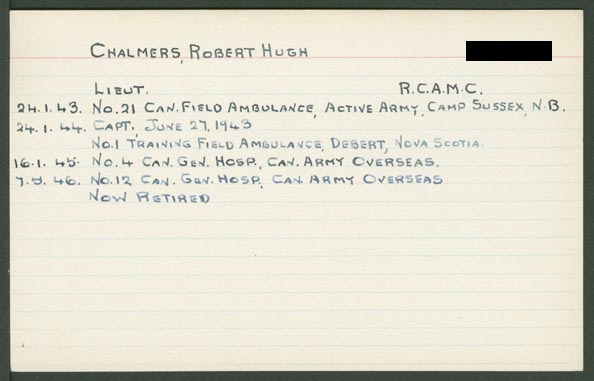 CHALMERS, ROBERT HUGH
LIEUT. R.C.A.M.C.
24.1.43. NO.21 CAN. FIELD AMBULANCE, ACTIVE ARMY, CAMP SUSSEX, N.B.
24.1.44. CAPT., JUNE 27, 1943
NO.1 TRAINING FIELD AMBULANCE, DEBERT, NOVA SCOTIA.
16.1.45. NO.4 CAN. GEN. HOSP., CAN. ARMY OVERSEAS.
7.5.46. NO.12 CAN. GEN. HOSP., CAN. ARMY OVERSEAS
NOW RETIRED